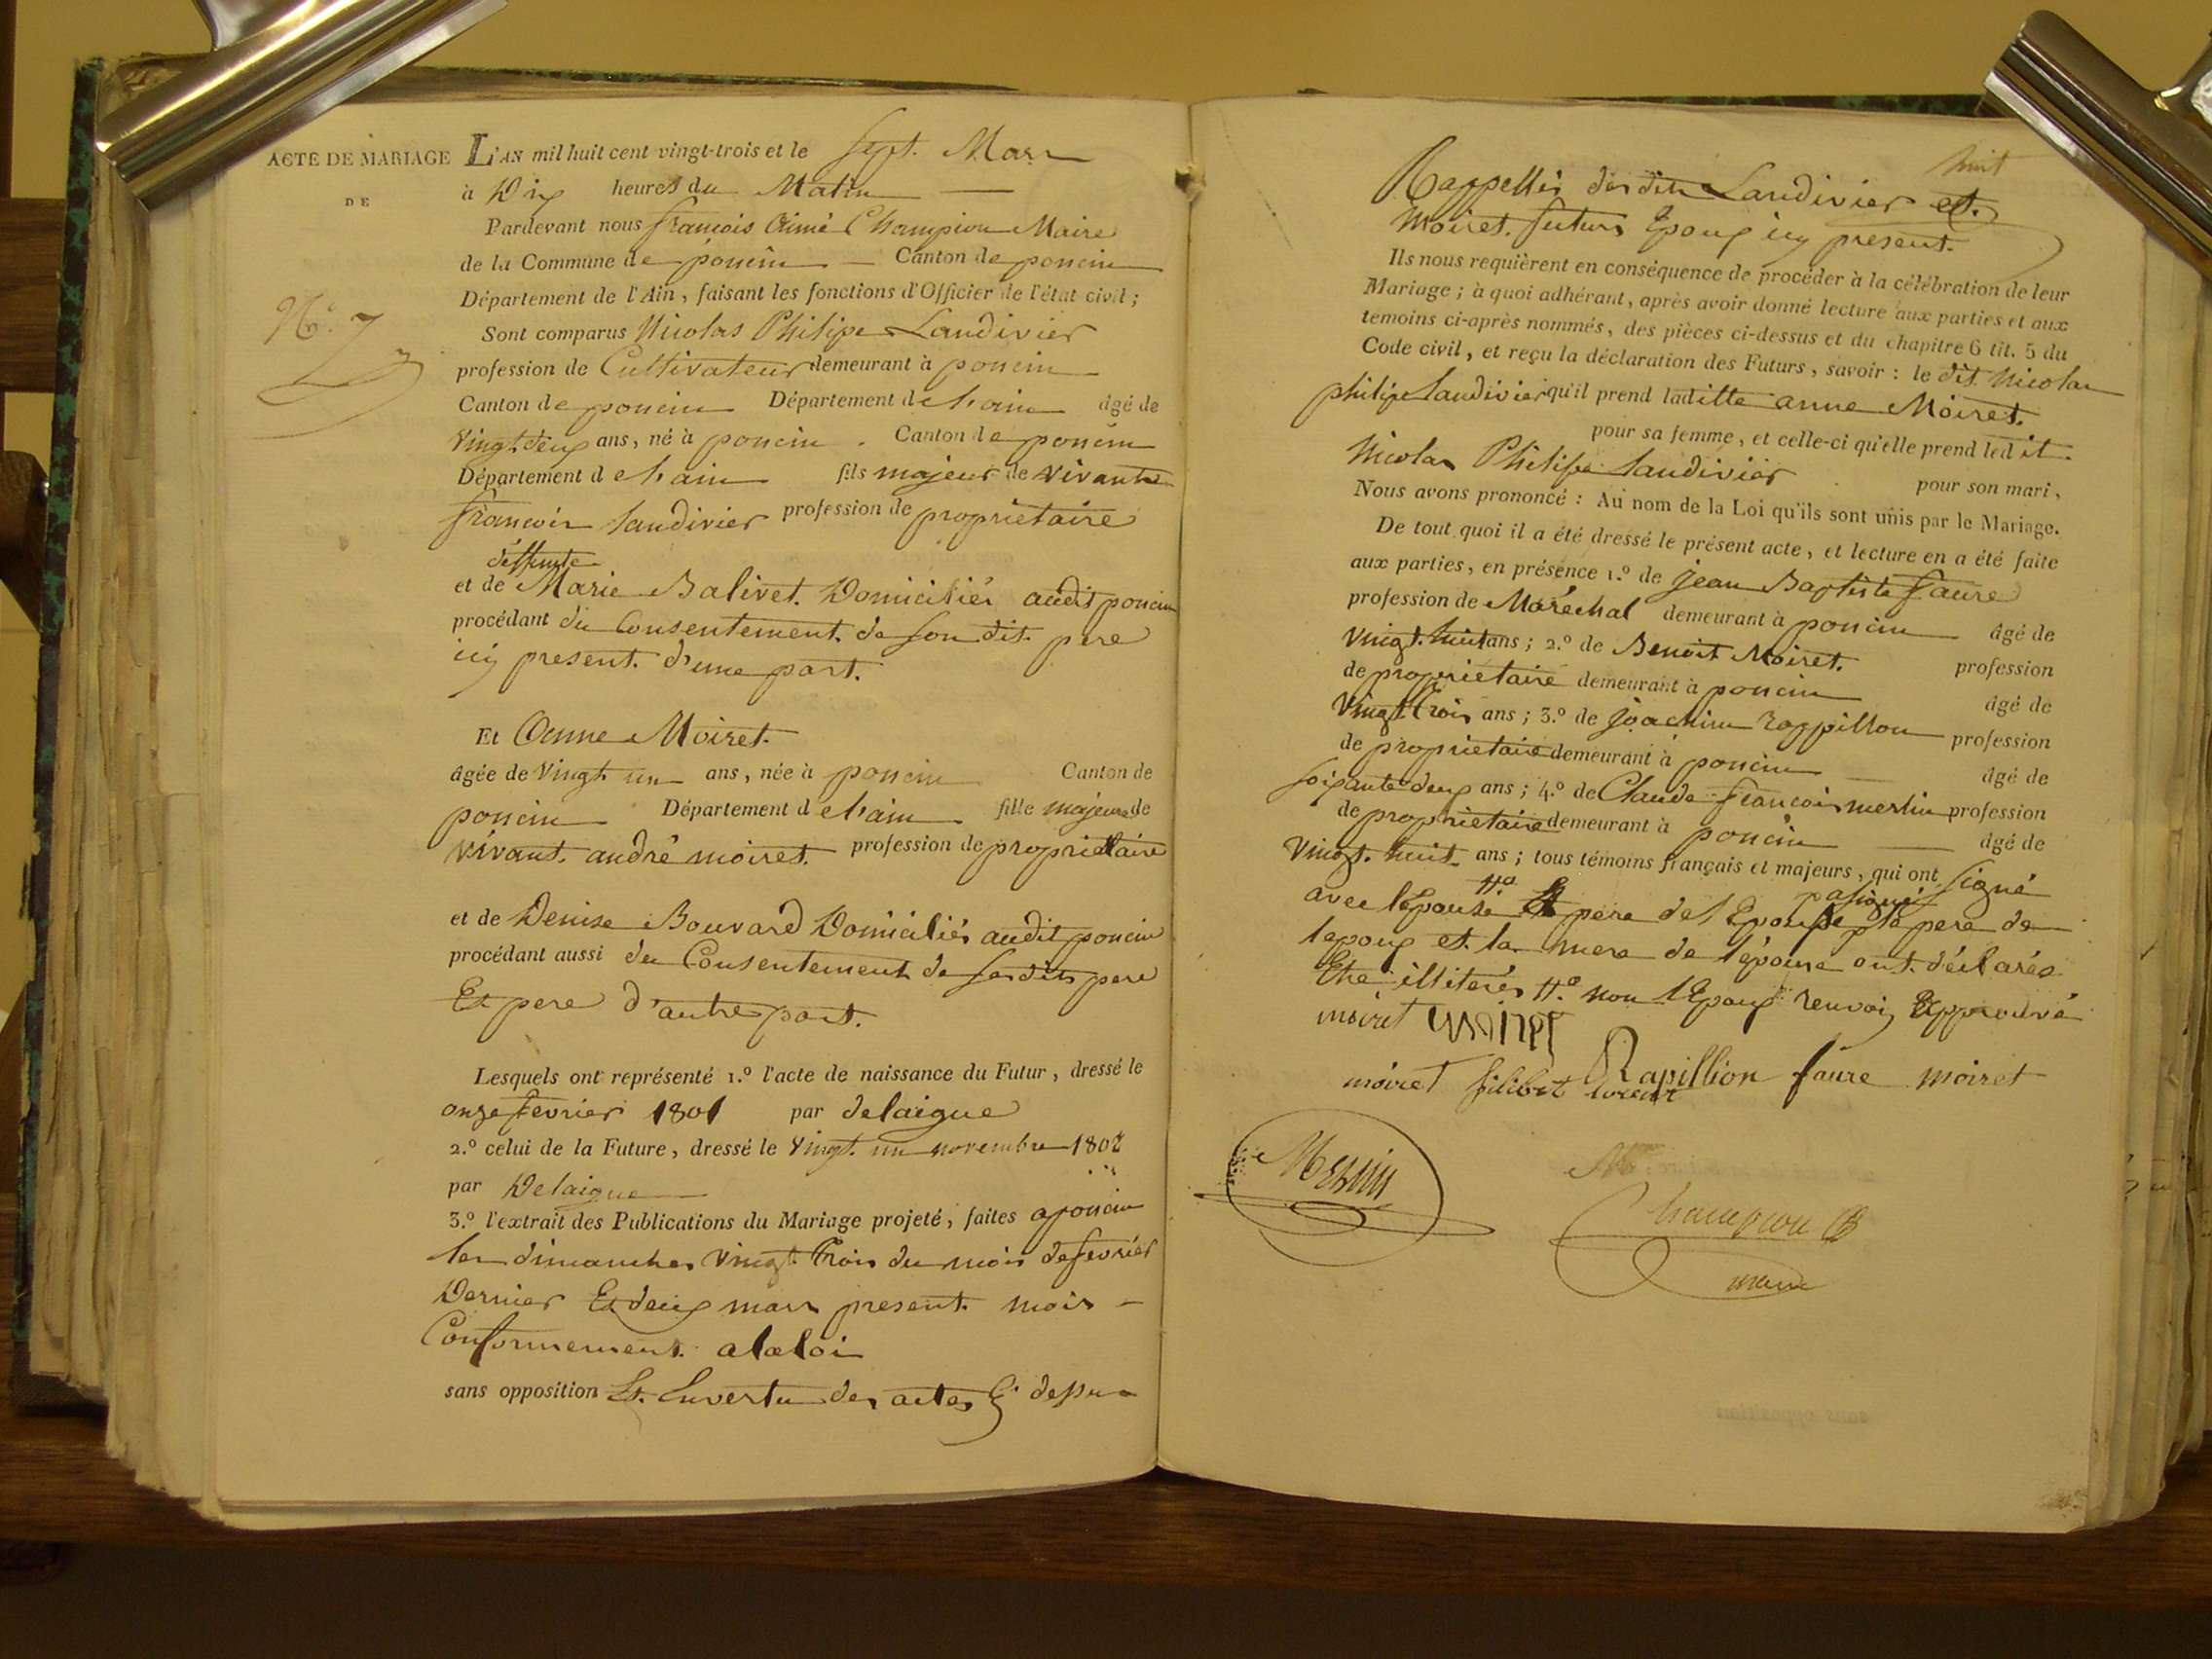 ACTE DE MARIAGE
DE
N.o 7
L'AN mil huit cent vingt-trois et le sept Mars
à Dix heures du Matin
Pardevant nous françois Aimé Champion Maire
de la Commune de poncin Canton de poncin
Département de l'Ain, faisant les fonctions d'Officier de l'état civil;
Sont comparus Nicolas Philipe Landivier
profession de Cultivateur demeurant à poncin
Canton de poncin Département de l'ain âgé de
vingt deux ans, né à poncin. Canton de poncin
Département de l'ain fils majeur de vivants
françois Landivier profession de propriétaire
deffunte
et de Marie Balivet. Domiciliés audit poncin
procédant du Consentement. de son dit. pere
icy present. d'une part.
Et Anne Moiret.
âgée de Vingt un ans, née à poncin Canton de
poncin Département de l'ain fille majeure de
vivant. andré moiret. profession de propriétaire
et de Denise Bouvard Domiciliés audit poncin
procédant aussi du Consentement de ses dits pere
Et pere d'autre part.
Lesquels ont représenté 1.º l'acte de naissance du Futur, dressé le
onze fevrier 1801 par delaigue
2.º celui de la Future, dressé le Vingt. un novembre 1802
par Delaigue
3.º l'extrait des Publications du Mariage projeté, faites a poncin
les dimanches vingt. trois du mois de fevrier
Dernier Et deux mars present. mois -
Conformement. a la loi
sans opposition Et. Envertu des actes Ci dessus
huit
Rappellés des dits Landivier et.
Moiret. futurs Epoux icy present.
Ils nous requièrent en conséquence de procéder à la célébration de leur
Mariage; à quoi adhérant, après avoir donné lecture aux parties et aux
temoins ci-après nommés, des pièces ci-dessus et du chapitre 6 tit. 5 du
Code civil, et reçu la déclaration des Futurs, savoir: le dit Nicolas
philipe Landivier qu'il prend laditte anne Moiret.
pour sa femme, et celle-ci qu'elle prend ledit.
Nicolas Philipe Landivier pour son mari,
Nous avons prononcé: Au nom de la Loi qu'ils sont unis par le Mariage.
De tout quoi il a été dressé le présent acte, et lecture en a été faite
aux parties, en présence 1.º de jean Baptiste faure
profession de Maréchal demeurant à poncin âgé de
vingt. huit ans; 2.º de Benoit Moiret. profession
de propriétaire demeurant à poncin âgé de
Vingt trois ans; 3.º de joachim rappillon profession
de propriétaire demeurant à poncin âgé de
soixante deux ans; 4.º de Claude françois merlin profession
de propriétaire demeurant à poncin âgé de
Vingt. huit ans; tous témoins français et majeurs, qui ont signé
avec l'Epouse pere de l'Epouse le pere de
lepoux et. la mere de l'épouse ont. déclarés
Etre illiterés non l'Epoux renvoi Approuvé
moiret moiret
moiret filibert Rapillion faure moiret
Merlin
Champion
maire